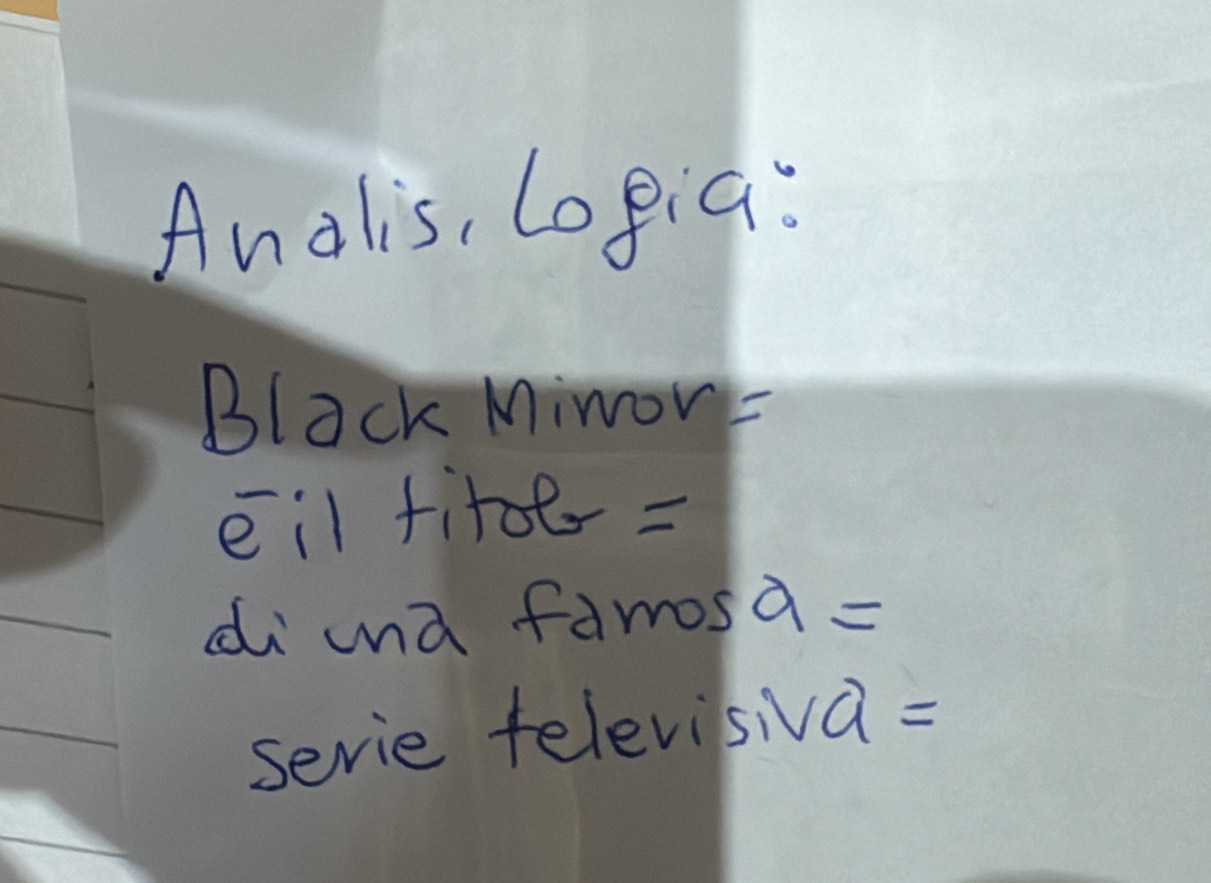 Analisi Logica:
Black Mirror =
è il titolo =
di una famosa =
serie televisiva =